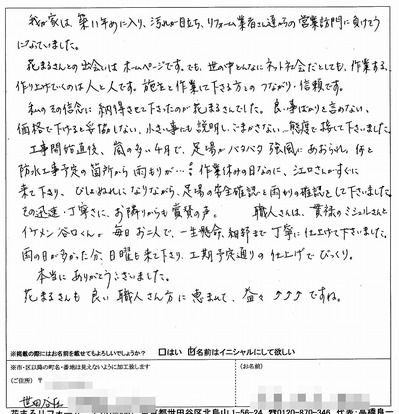 我が家は、築11年めに入り、汚れが目立ち、リフォーム業者さん達からの営業訪問に負けそう
になっていました。
花まるさんとの出会いは ホームページです。でも、世の中どんなにネット社会だとしても、作業する、
作り上げてくのは人と人です。施主と作業して下さる方とのつながり・信頼です。
私のその信念に 納得させて下さったのが花まるさんでした。良い事ばかりを言わない、
価格で下げると妥協しない、小さい事にも説明し、ごまかさない…態度で接して下さいました。
工事開始直後、嵐の多い4月で、足場がバタバタ 強風に あおられ、何と
防水工事予定の箇所から 雨もりが…! 作業休みの日なのに、江口さんがすぐに
来て下さり、びしょぬれになりながら、足場の安全確認と雨もりの確認をして下さいました。
その迅速・丁寧さに、お隣りからも賞賛の声。 職人さんは、貫禄のミシュルさんと
イケメン谷口くんが 毎日お二人で、一生懸命、細部まで丁寧に仕上げて下さいました。
雨の日が多かった分、日曜も来て下さり、工期予定通りの仕上げでびっくり。
本当に ありがとうございました。
花まるさんも 良い 職人さん方に 恵まれて、益々 ↗↗↗ですね。
※掲載の際にはお名前を載せてもよろしいでしょうか? □はい ☑名前はイニシャルにして欲しい
※市・区以降の町名・番地は見えないように加工致します
(ご住所) 〒
(お名前)
世田谷区
花まるリフォーム 東京都世田谷区北烏山1-56-24 ☎0120-870-346 代表:高橋良一